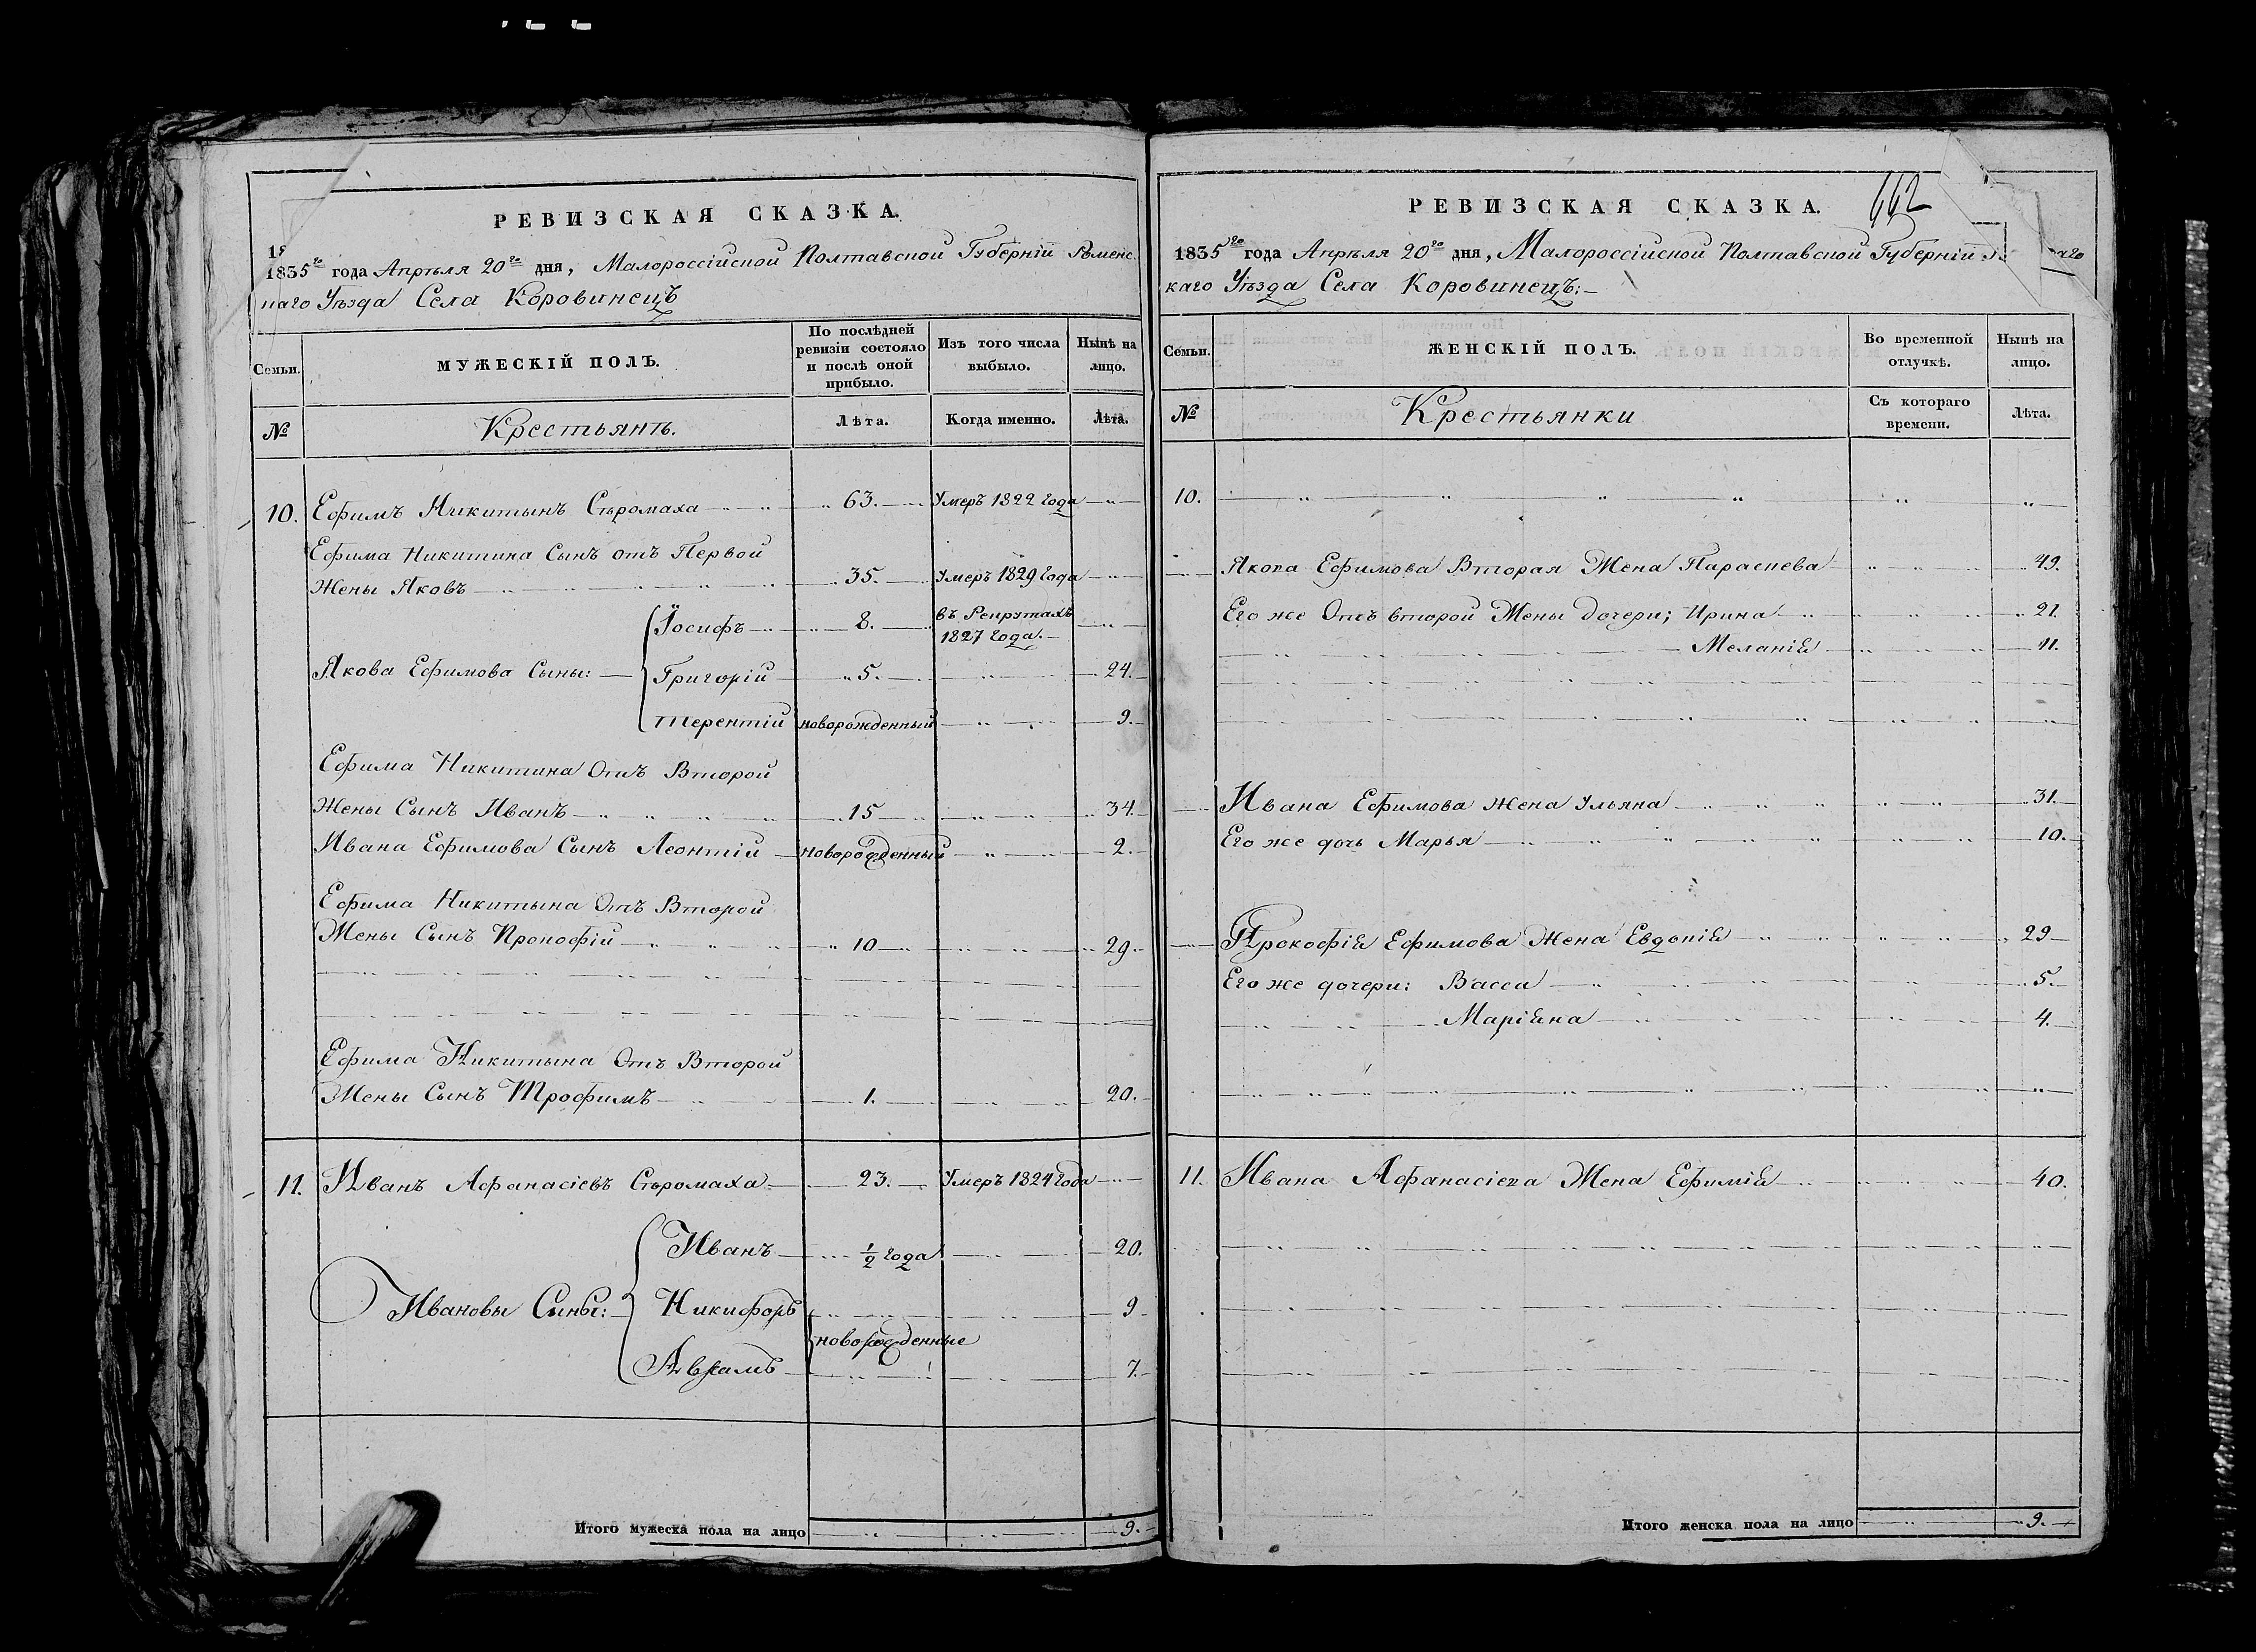 РЕВИЗСКАЯ СКАЗКА.
18
1835го года Апрѣля 20го дня, Малороссійской Полтавской Губерніи Роменс.
каго Уѣзда Села Коровинецъ
Семьи.
МУЖЕСКІЙ ПОЛЪ.
По послѣдней ревизіи состояло и послѣ оной прибыло.
Изъ того числа выбыло.
Нынѣ на лицо.
№
Крестьянъ.
Лѣта.
Когда именно.
Лѣта.
10. Ефимъ Никитынъ Сѣромаха 63. Умеръ 1822 года
Ефима Никитина Сынъ отъ Первой
Жены Яковъ 35. Умеръ 1829 года
Іосифъ 8. въ Рекрутахъ
1827 года.
Якова Ефимова Сыны: Григорій 5. 24.
Терентій новорожденный 9.
Ефима Никитина Отъ Второй
Жены Сынъ Иванъ 15 34.
Ивана Ефимова Сынъ Леонтій новорожденный 2.
Ефима Никитына Отъ Второй
Жены Сынъ Прокофій 10 29.
Ефима Никитына Отъ Второй
Жены Сынъ Трофимъ 1. 20.
11. Иванъ Афанасіевъ Сѣромаха 23. Умеръ 1824 года
Иванъ 1/2 года 20.
Ивановы Сыны: Никифоръ 9
новорожденные
Аврамъ 7.
Итого мужеска пола на лицо 9.
РЕВИЗСКАЯ СКАЗКА.
662
1835го года Апрѣля 20го дня, Малороссійской Полтавской Губерніи
каго Уѣзда Села Коровинецъ:
Семьи.
ЖЕНСКІЙ ПОЛЪ.
Во временной отлучкѣ.
Нынѣ на лицо.
№
Крестьянки
Съ котораго времени.
Лѣта.
10.
Якова Ефимова Вторая Жена Параскева 49.
Его же Отъ второй Жены дочери; Ирина 21.
Меланія 11.
Ивана Ефимова Жена Ульяна 31.
Его же дочь Марья 10.
Прокофія Ефимова Жена Евдокія 29
Его же дочери: Васса 5.
Маріяна 4.
11. Ивана Афанасіева Жена Ефимія 40.
Итого женска пола на лицо 9.